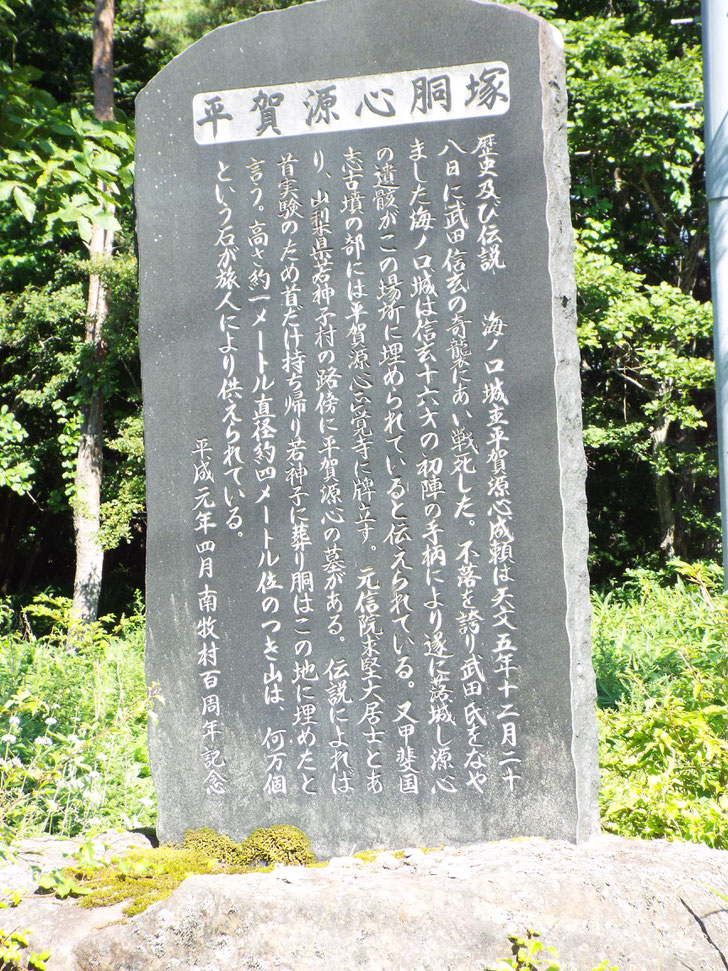 平賀源心胴塚
歴史及び伝説　海ノ口城主平賀源心成頼は天文五年十二月二十
八日に武田信玄の奇襲にあい戦死した。不落を誇り武田氏をなや
ました海ノ口城は信玄十六才の初陣の手柄により遂に落城し源心
の遺骸がこの場所に埋められていると伝えられている。又甲斐国
志古墳の部には平賀源心正覚寺に牌立す。元信院米堅大居士とあ
り、山梨県若神子村の路傍に平賀源心の墓がある。伝説によれば
首実験のため首だけ持ち帰り若神子に葬り胴はこの地に埋めたと
言う。高さ約一メートル直径約四メートル位のつき山は、何万個
という石が旅人により供えられている。
平成元年四月南牧村百周年記念